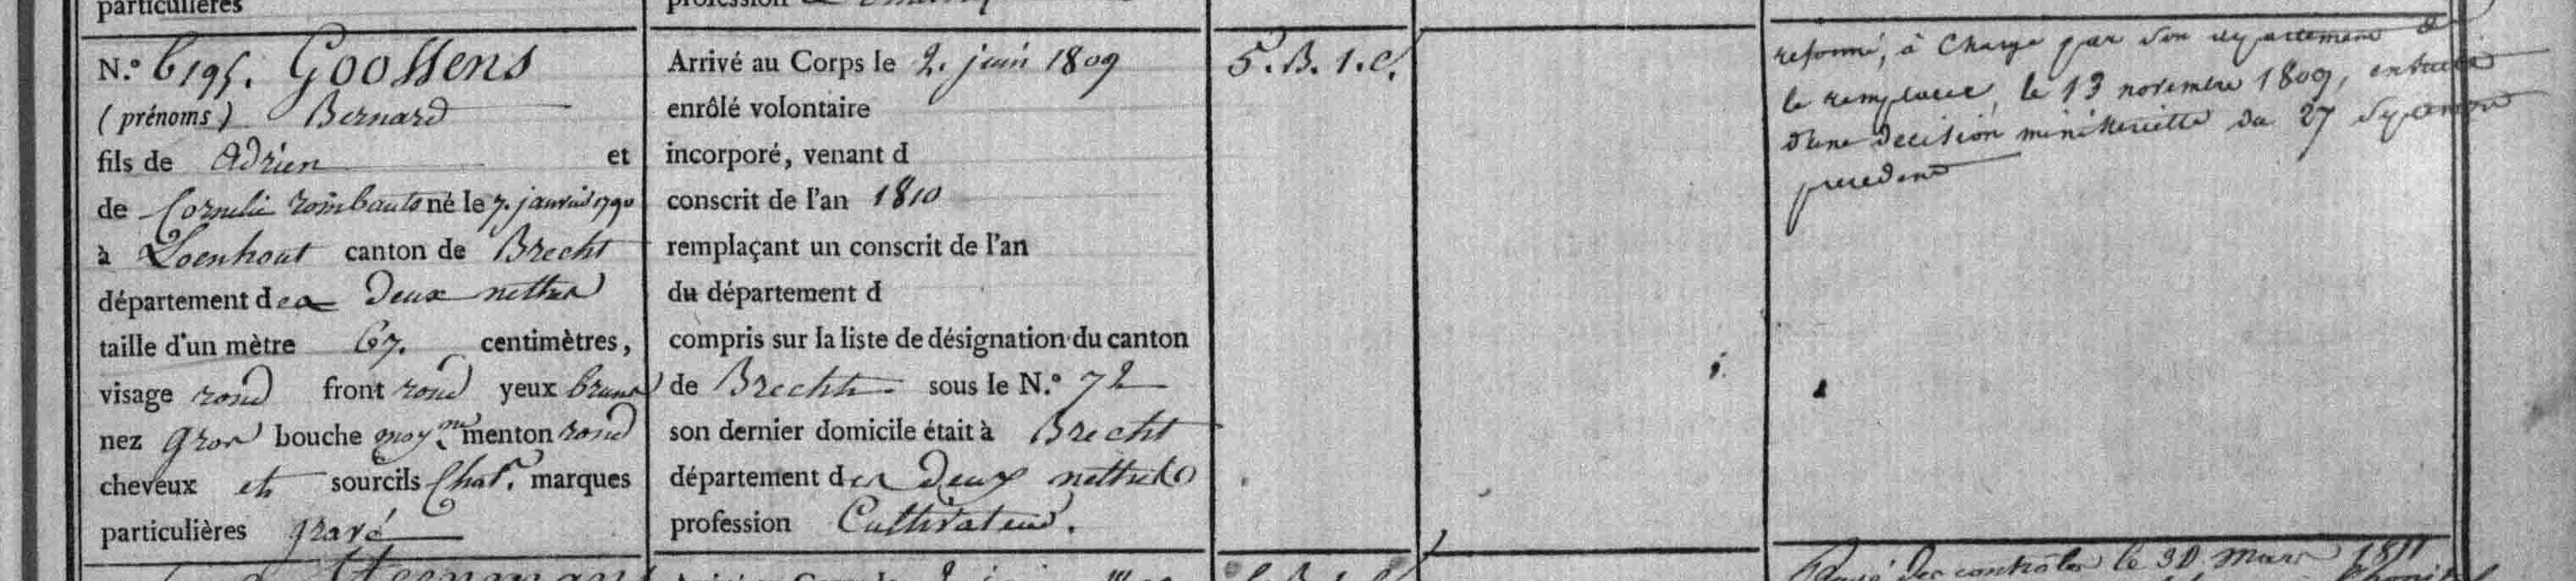 particulières
N.º 6195. Goossens
(prénoms) Bernard
fils de Adrien et
de Cornelie rombauts né le 7. janvier 1790
à Loenhout canton de Brecht
département des deux nettes
taille d'un mètre 67. centimètres,
visage rond front rond yeux bruns
nez gros bouche moy.ne menton rond
cheveux et sourcils Chat. marques
particulières gravé
profession
Arrivé au Corps le 2. juin 1809
enrôlé volontaire
incorporé, venant d
conscrit de l'an 1810
remplaçant un conscrit de l'an
du département d
compris sur la liste de désignation du canton
de Brecht sous le N.º 72
son dernier domicile était à Brecht
département des Deux netthes
profession Cultivateur.
5. B. 1. C.
reformé, à Charge par son departement de
le remplacer, le 13 novembre 1809, ensuite
d'une decision ministerielle du 27 septembre
precedent
Rayé des controles le 30 mars 1811